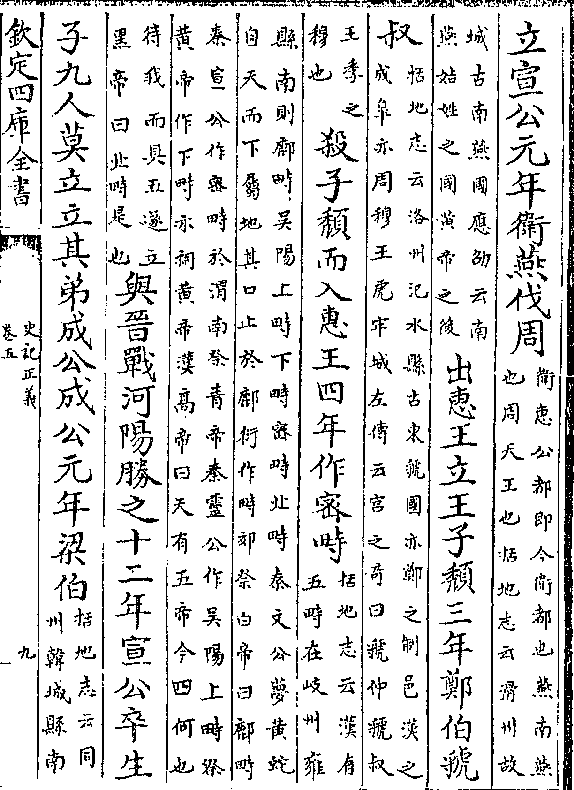 立宣公元年衛燕伐周
衛惠公都即今衛都也燕南燕
也周天王也括地志云滑州故
城古南燕國應劭云南
燕姞姓之國黃帝之後
出惠王立王子頽三年鄭伯虢
叔
括地志云洛州汜水縣古東虢國亦鄭之制邑漢之
成臯亦周穆王虎牢城左傳云宮之奇曰虢仲虢叔
王季之
穆也
殺子頽而入惠王四年作宻畤
括地志云漢有
五畤在岐州雍
縣南則鄜畤吳陽上畤下畤宻畤北畤秦文公夢黃蛇
自天而下屬地其口止於鄜衍作畤郊祭白帝曰鄜畤
秦宣公作宻畤於渭南祭青帝秦靈公作吳陽上畤祭
黃帝作下畤亦祠黃帝漢髙帝曰天有五帝今四何也
待我而具五遂立
黑帝曰北畤是也
與晉戰河陽勝之十二年宣公卒生
子九人莫立立其弟成公成公元年梁伯
括地志云同
州韓城縣南
欽定四庫全書
史記正義
卷五
九